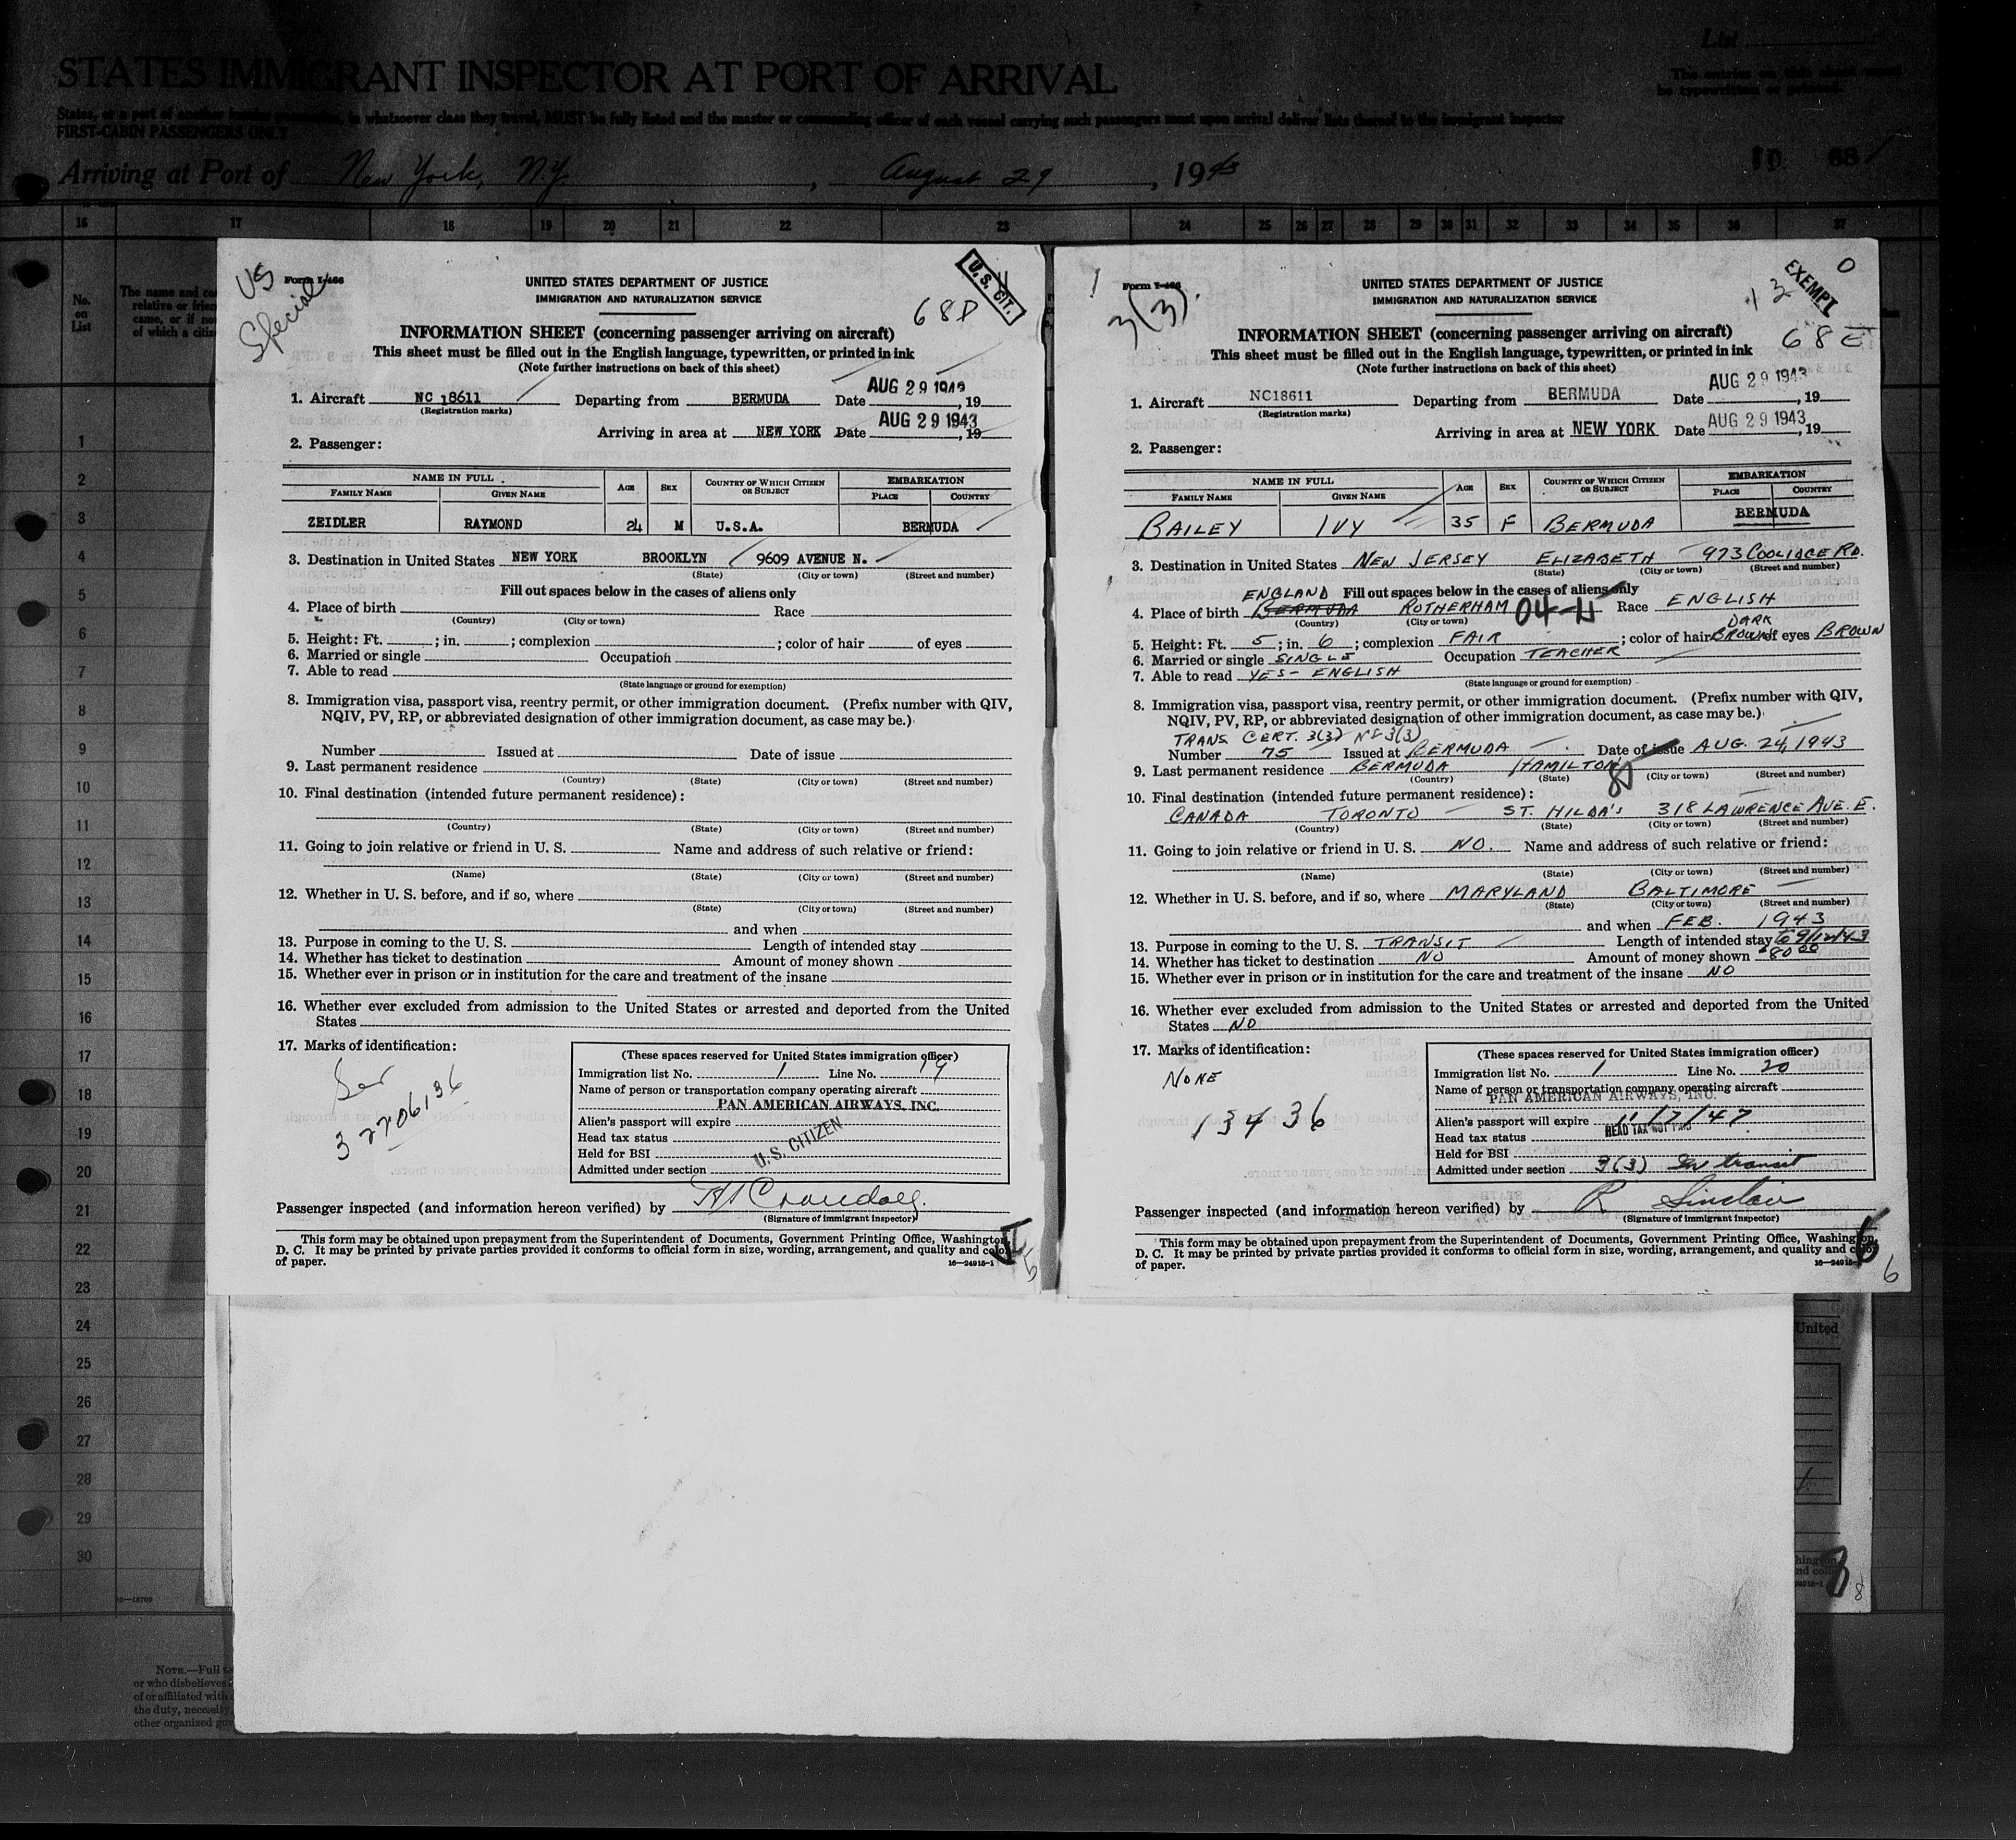 List
STATES IMMIGRANT INSPECTOR AT PORT OF ARRIVAL
The entries on this sheet must
be typewritten or printed.
States, or a port of another insular possession, in whatsoever class they travel, MUST be fully listed and the master or commanding officer of each vessel carrying such passengers must upon arrival deliver lists thereof to the immigrant inspector
FIRST-CABIN PASSENGERS ONLY
Arriving at Port of New York, N.Y. , August 29 , 1943
68
16 17 18 19 20 21 22 23 24 25 26 27 28 29 30 31 32 33 34 35 36 37
No. on List
The name and
relative or frien
came, or if no
of which a citiz
1
2
3
4
5
6
7
8
9
10
11
12
13
14
15
16
17
18
19
20
21
22
23
24
25
26
27
28
29
30
16—18709
NOTE.—Full
or who disbelieves
of or affiliated with
the duty, necessity,
other organized gov
US
Special
Form I-466
UNITED STATES DEPARTMENT OF JUSTICE
IMMIGRATION AND NATURALIZATION SERVICE
U.S. CIT.
68D
INFORMATION SHEET (concerning passenger arriving on aircraft)
This sheet must be filled out in the English language, typewritten, or printed in ink
(Note further instructions on back of this sheet)
1. Aircraft NC 18611 Departing from BERMUDA Date AUG 29 1943, 19
(Registration marks)
Arriving in area at NEW YORK Date AUG 29 1943, 19
2. Passenger:
NAME IN FULL AGE SEX COUNTRY OF WHICH CITIZEN OR SUBJECT EMBARKATION
FAMILY NAME GIVEN NAME PLACE COUNTRY
ZEIDLER RAYMOND 24 M U.S.A. BERMUDA
3. Destination in United States NEW YORK BROOKLYN 9609 AVENUE N.
(State) (City or town) (Street and number)
Fill out spaces below in the cases of aliens only
4. Place of birth Race
(Country) (City or town)
5. Height: Ft. ; in. ; complexion ; color of hair of eyes
6. Married or single Occupation
7. Able to read
(State language or ground for exemption)
8. Immigration visa, passport visa, reentry permit, or other immigration document. (Prefix number with QIV,
NQIV, PV, RP, or abbreviated designation of other immigration document, as case may be.)
Number Issued at Date of issue
9. Last permanent residence
(Country) (State) (City or town) (Street and number)
10. Final destination (intended future permanent residence):
(Country) (State) (City or town) (Street and number)
11. Going to join relative or friend in U. S. Name and address of such relative or friend:
(Name) (State) (City or town) (Street and number)
12. Whether in U. S. before, and if so, where
(State) (City or town) (Street and number)
and when
13. Purpose in coming to the U. S. Length of intended stay
14. Whether has ticket to destination Amount of money shown
15. Whether ever in prison or in institution for the care and treatment of the insane
16. Whether ever excluded from admission to the United States or arrested and deported from the United
States
17. Marks of identification:
Ser
3 2706136
(These spaces reserved for United States immigration officer)
Immigration list No. 1 Line No. 19
Name of person or transportation company operating aircraft
PAN AMERICAN AIRWAYS, INC.
Alien's passport will expire
Head tax status
Held for BSI
Admitted under section
U.S. CITIZEN
Passenger inspected (and information hereon verified) by H Crandall
(Signature of immigrant inspector)
This form may be obtained upon prepayment from the Superintendent of Documents, Government Printing Office, Washington,
D. C. It may be printed by private parties provided it conforms to official form in size, wording, arrangement, and quality and color
of paper.
16—24915-1
5
Form I-466
3(3)
UNITED STATES DEPARTMENT OF JUSTICE
IMMIGRATION AND NATURALIZATION SERVICE
EXEMPT
0
68E
INFORMATION SHEET (concerning passenger arriving on aircraft)
This sheet must be filled out in the English language, typewritten, or printed in ink
(Note further instructions on back of this sheet)
1. Aircraft NC18611 Departing from BERMUDA Date AUG 29 1943, 19
(Registration marks)
Arriving in area at NEW YORK Date AUG 29 1943, 19
2. Passenger:
NAME IN FULL AGE SEX COUNTRY OF WHICH CITIZEN OR SUBJECT EMBARKATION
FAMILY NAME GIVEN NAME PLACE COUNTRY
BAILEY IVY 35 F BERMUDA BERMUDA
3. Destination in United States NEW JERSEY ELIZABETH 973 COOLIDGE RD.
(State) (City or town) (Street and number)
ENGLAND Fill out spaces below in the cases of aliens only
4. Place of birth BERMUDA ROTHERHAM 04-4 Race ENGLISH
(Country) (City or town)
DARK
5. Height: Ft. 5 ; in. 6 ; complexion FAIR ; color of hair BROWN of eyes BROWN
6. Married or single SINGLE Occupation TEACHER
7. Able to read YES - ENGLISH
(State language or ground for exemption)
8. Immigration visa, passport visa, reentry permit, or other immigration document. (Prefix number with QIV,
NQIV, PV, RP, or abbreviated designation of other immigration document, as case may be.)
TRANS CERT. 3(3) No 3(3)
Number 75 Issued at BERMUDA Date of issue AUG. 24, 1943
9. Last permanent residence BERMUDA HAMILTON
(Country) (State) (City or town) (Street and number)
10. Final destination (intended future permanent residence):
CANADA TORONTO ST. HILDA'S 318 LAWRENCE AVE. E.
(Country) (State) (City or town) (Street and number)
11. Going to join relative or friend in U. S. NO. Name and address of such relative or friend:
(Name) (State) (City or town) (Street and number)
12. Whether in U. S. before, and if so, where MARYLAND BALTIMORE
(State) (City or town) (Street and number)
and when FEB. 1943
13. Purpose in coming to the U. S. TRANSIT Length of intended stay to 9/12/43
14. Whether has ticket to destination NO Amount of money shown $80.00
15. Whether ever in prison or in institution for the care and treatment of the insane NO
16. Whether ever excluded from admission to the United States or arrested and deported from the United
States NO
17. Marks of identification:
NONE
13436
(These spaces reserved for United States immigration officer)
Immigration list No. 1 Line No. 20
Name of person or transportation company operating aircraft
PAN AMERICAN AIRWAYS, INC.
Alien's passport will expire 11/7/47
Head tax status HEAD TAX NOT PAID
Held for BSI
Admitted under section 3(3) in transit
Passenger inspected (and information hereon verified) by R Sinclair
(Signature of immigrant inspector)
This form may be obtained upon prepayment from the Superintendent of Documents, Government Printing Office, Washington,
D. C. It may be printed by private parties provided it conforms to official form in size, wording, arrangement, and quality and color
of paper.
16—24915-1
6
6
United
8
8